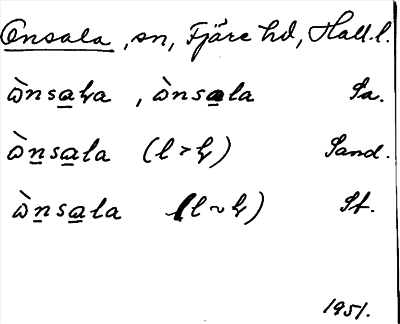 Onsala, sn, Fjäre hd, Hall. l.
ὼnsa̲ꞎa, ὼnsa̲la Sa.
ὼn̲sa̲la (l > ꞎ) Sand.
ὼn̲sa̲la (l ~ ꞎ) St.
1951.